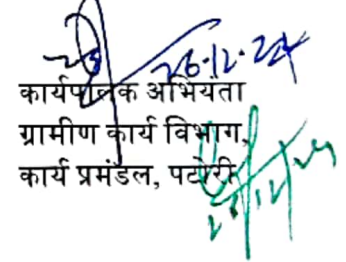 26.12.24
कार्यपालक अभियंता
ग्रामीण कार्य विभाग,
कार्य प्रमंडल, पटोरी